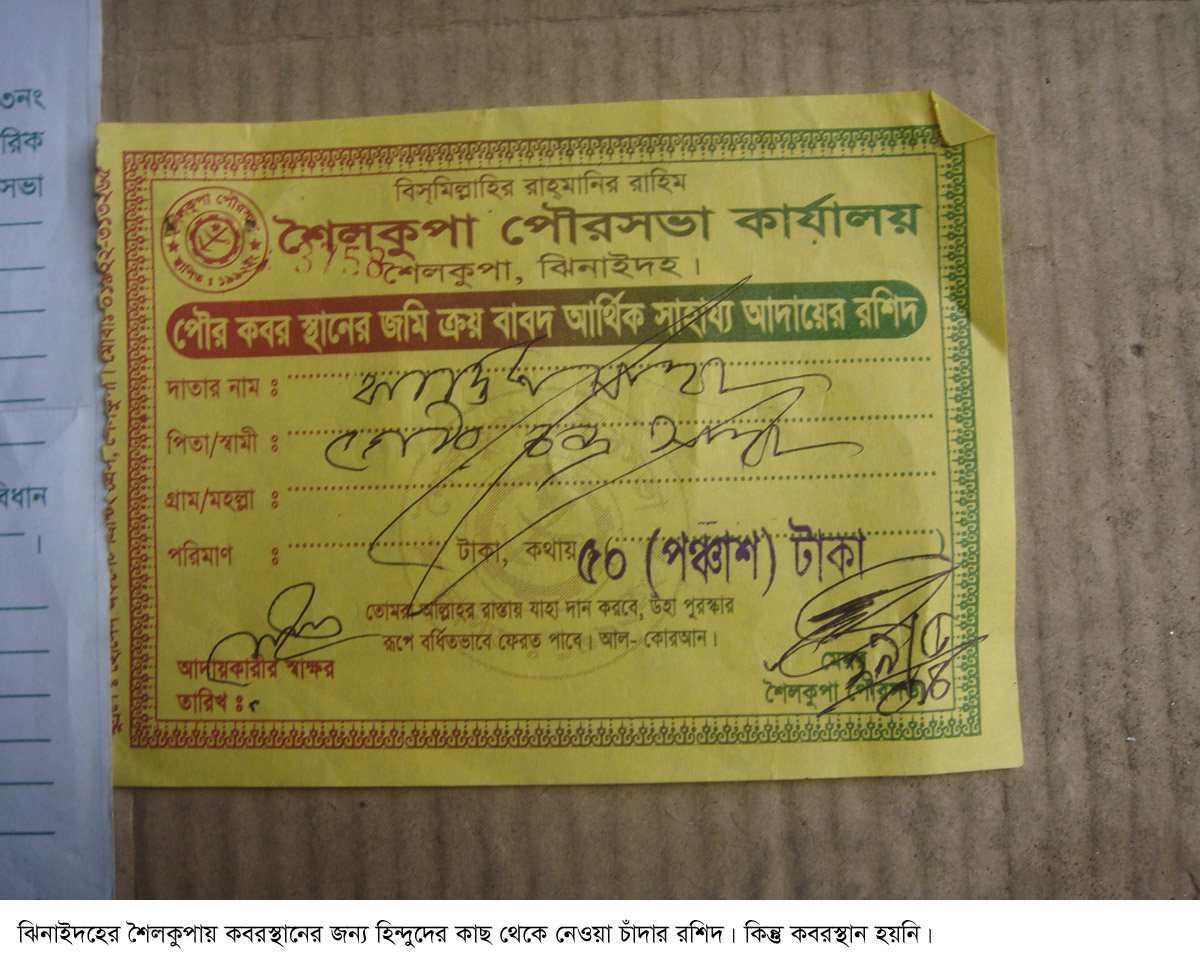 ৩নং
রিক
সভা
বিধান
বিস্‌মিল্লাহির রাহ্‌মানির রাহিম
শৈলকুপা পৌরসভা কার্যালয়
3758
শৈলকুপা, ঝিনাইদহ।
শৈলকুপা পৌরসভা
পৌর কবর স্থানের জমি ক্রয় বাবদ আর্থিক সাহায্য আদায়ের রশিদ
দাতার নাম :
পিতা/স্বামী : চন্দ্র
গ্রাম/মহল্লা :
পরিমাণ : টাকা, কথায় ৫০ (পঞ্চাশ) টাকা
তোমরা আল্লাহর রাস্তায় যাহা দান করবে, উহা পুরস্কার
রূপে বর্ধিতভাবে ফেরত পাবে। আল- কোরআন।
আদায়কারীর স্বাক্ষর
তারিখ :
মেয়র
শৈলকুপা পৌরসভা
ঝিনাইদহের শৈলকুপায় কবরস্থানের জন্য হিন্দুদের কাছ থেকে নেওয়া চাঁদার রশিদ। কিন্তু কবরস্থান হয়নি।